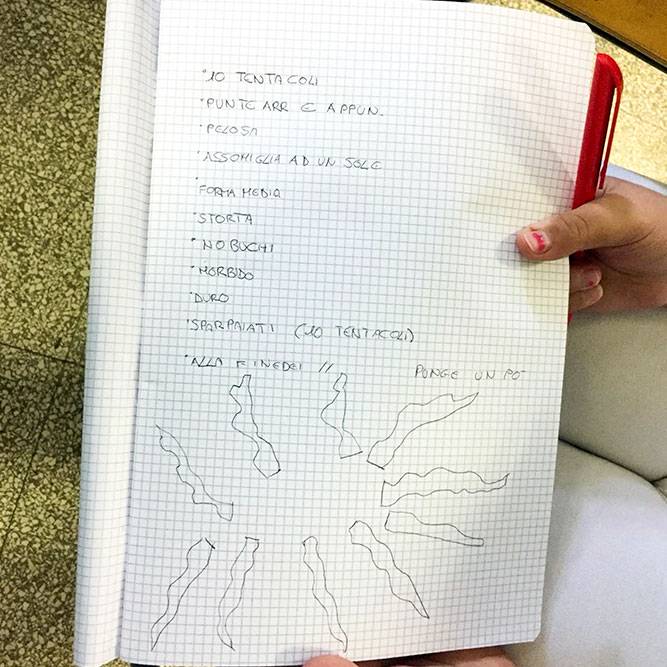 • 10 TENTACOLI
• PUNTE ARR E APPUN.
• PELOSA
• ASSOMIGLIA AD UN SOLE
• FORMA MEDIA
• STORTA
• NO BUCHI
• MORBIDO
• DURO
• SPARPAIATI (10 TENTACOLI)
• ALLA FINE DEI // PUNGE UN PO'